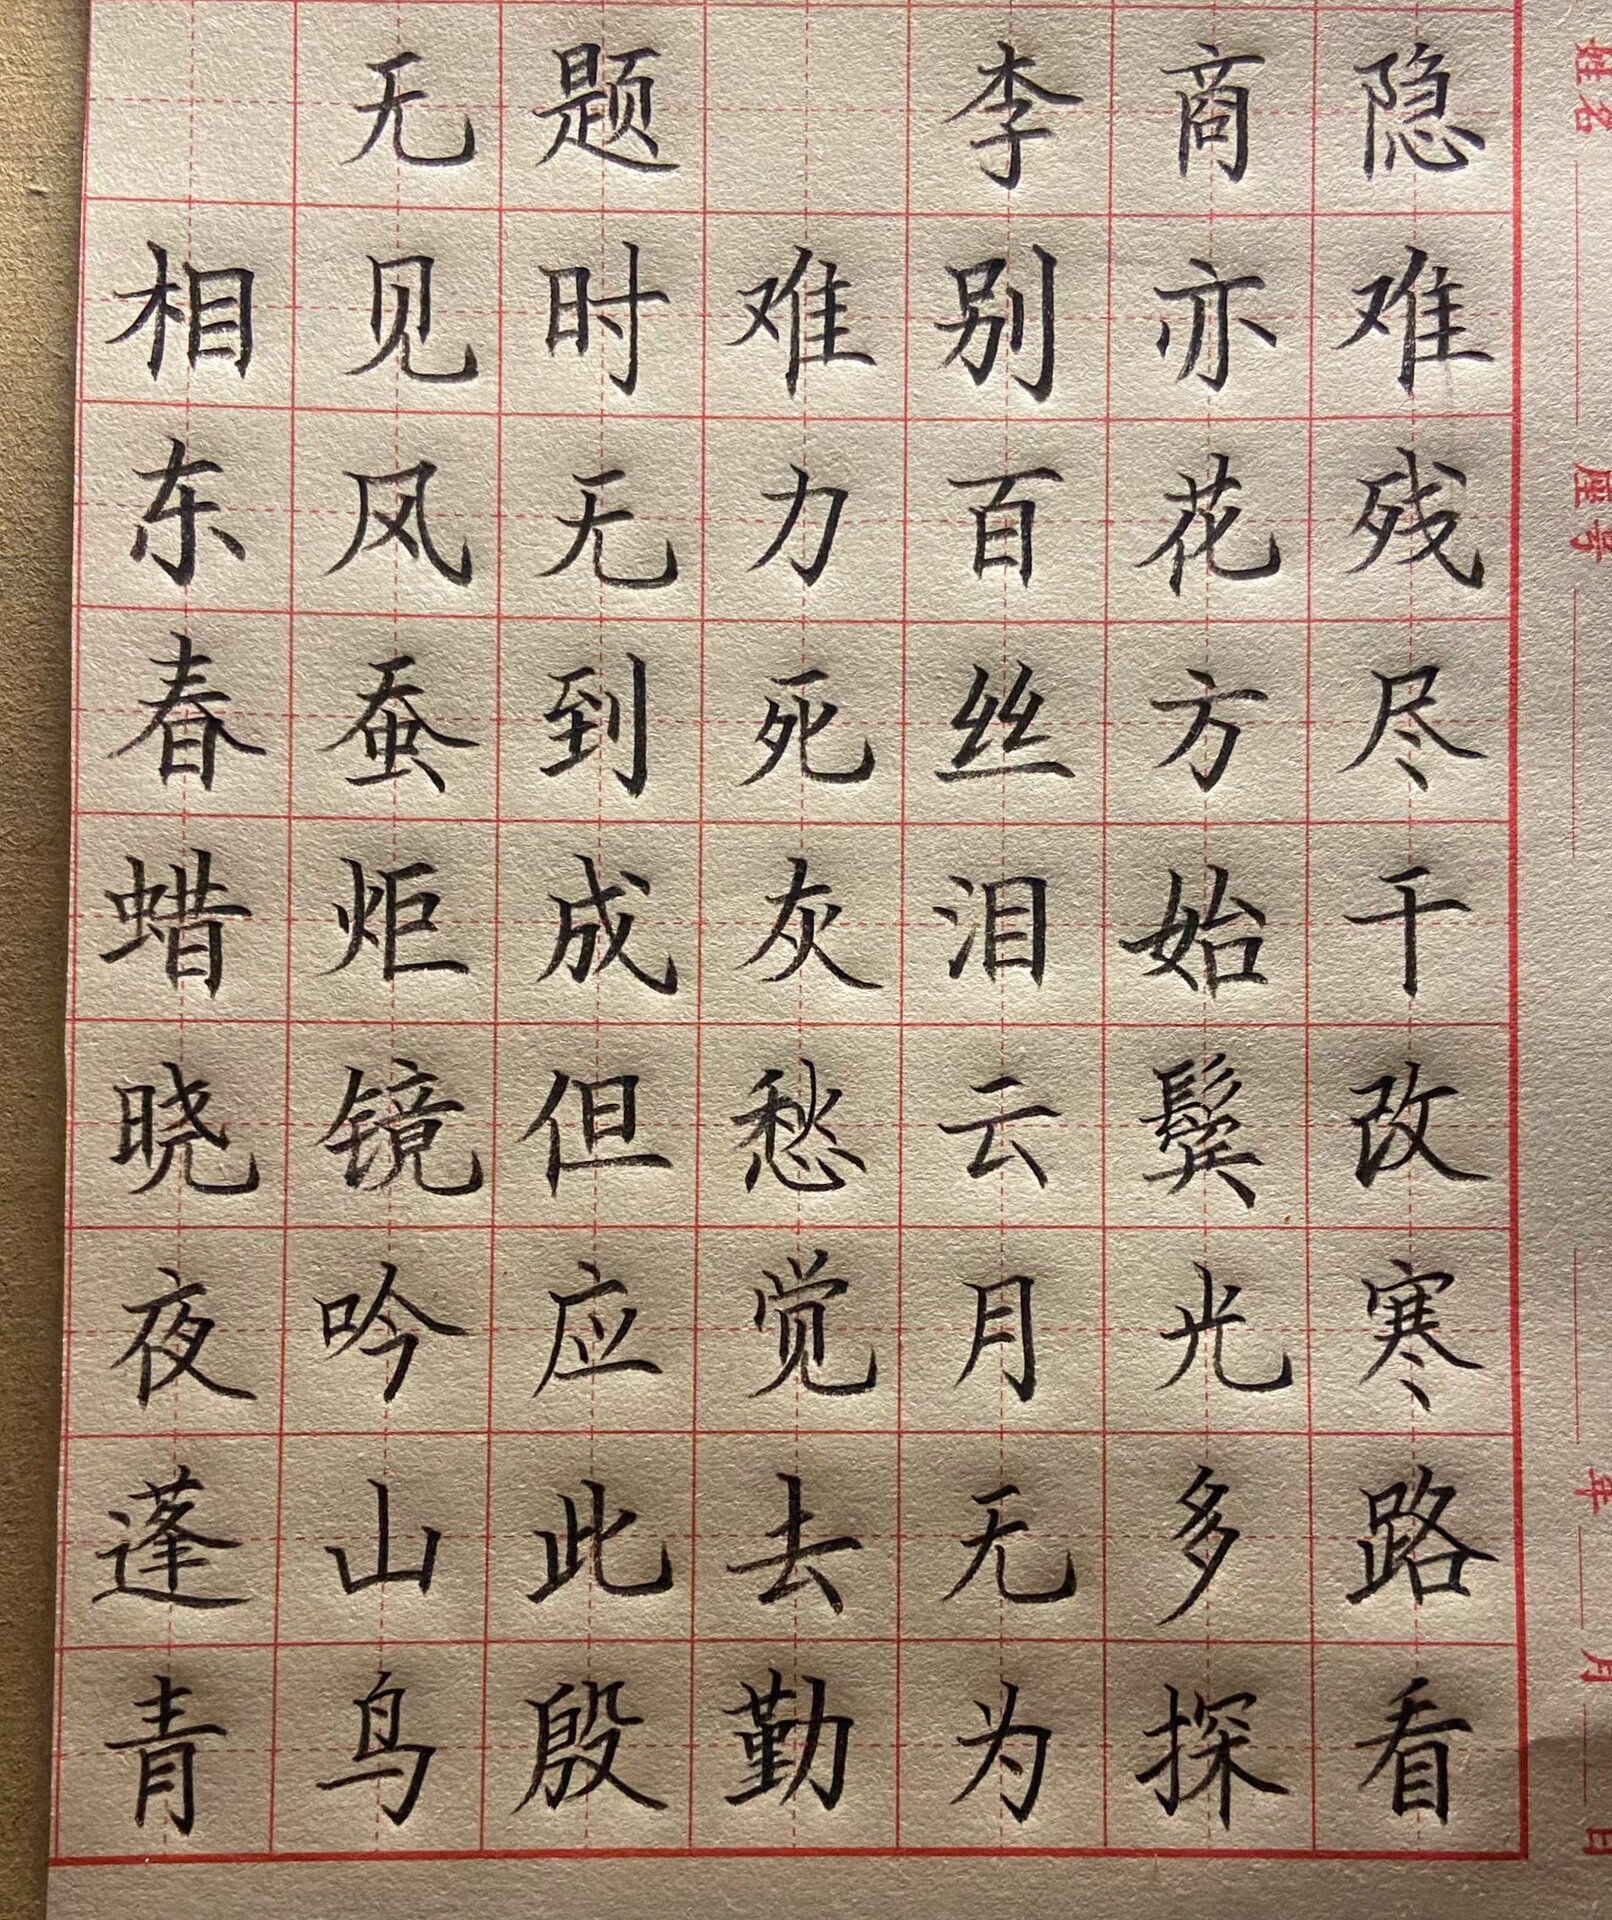 无题 李商隐
相见时难别亦难
东风无力百花残
春蚕到死丝方尽
蜡炬成灰泪始干
晓镜但愁云鬓改
夜吟应觉月光寒
蓬山此去无多路
青鸟殷勤为探看
姓名
座号
年 月 日